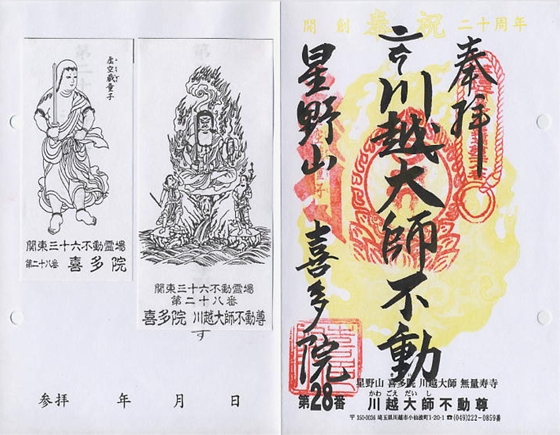 虚空蔵童子
関東三十六不動霊場
第二十八番 喜多院
関東三十六不動霊場
第二十八番
喜多院 川越大師不動尊
す
参拝 年 月 日
開創 奉祝 二十周年
奉拝
川越大師不動
星野山 喜多院
第28番
星野山 喜多院 川越大師 無量寿寺
かわごえだいし
川越大師不動尊
〒350-0036 埼玉県川越市小仙波町1-20-1 ☎(049)222-0859番